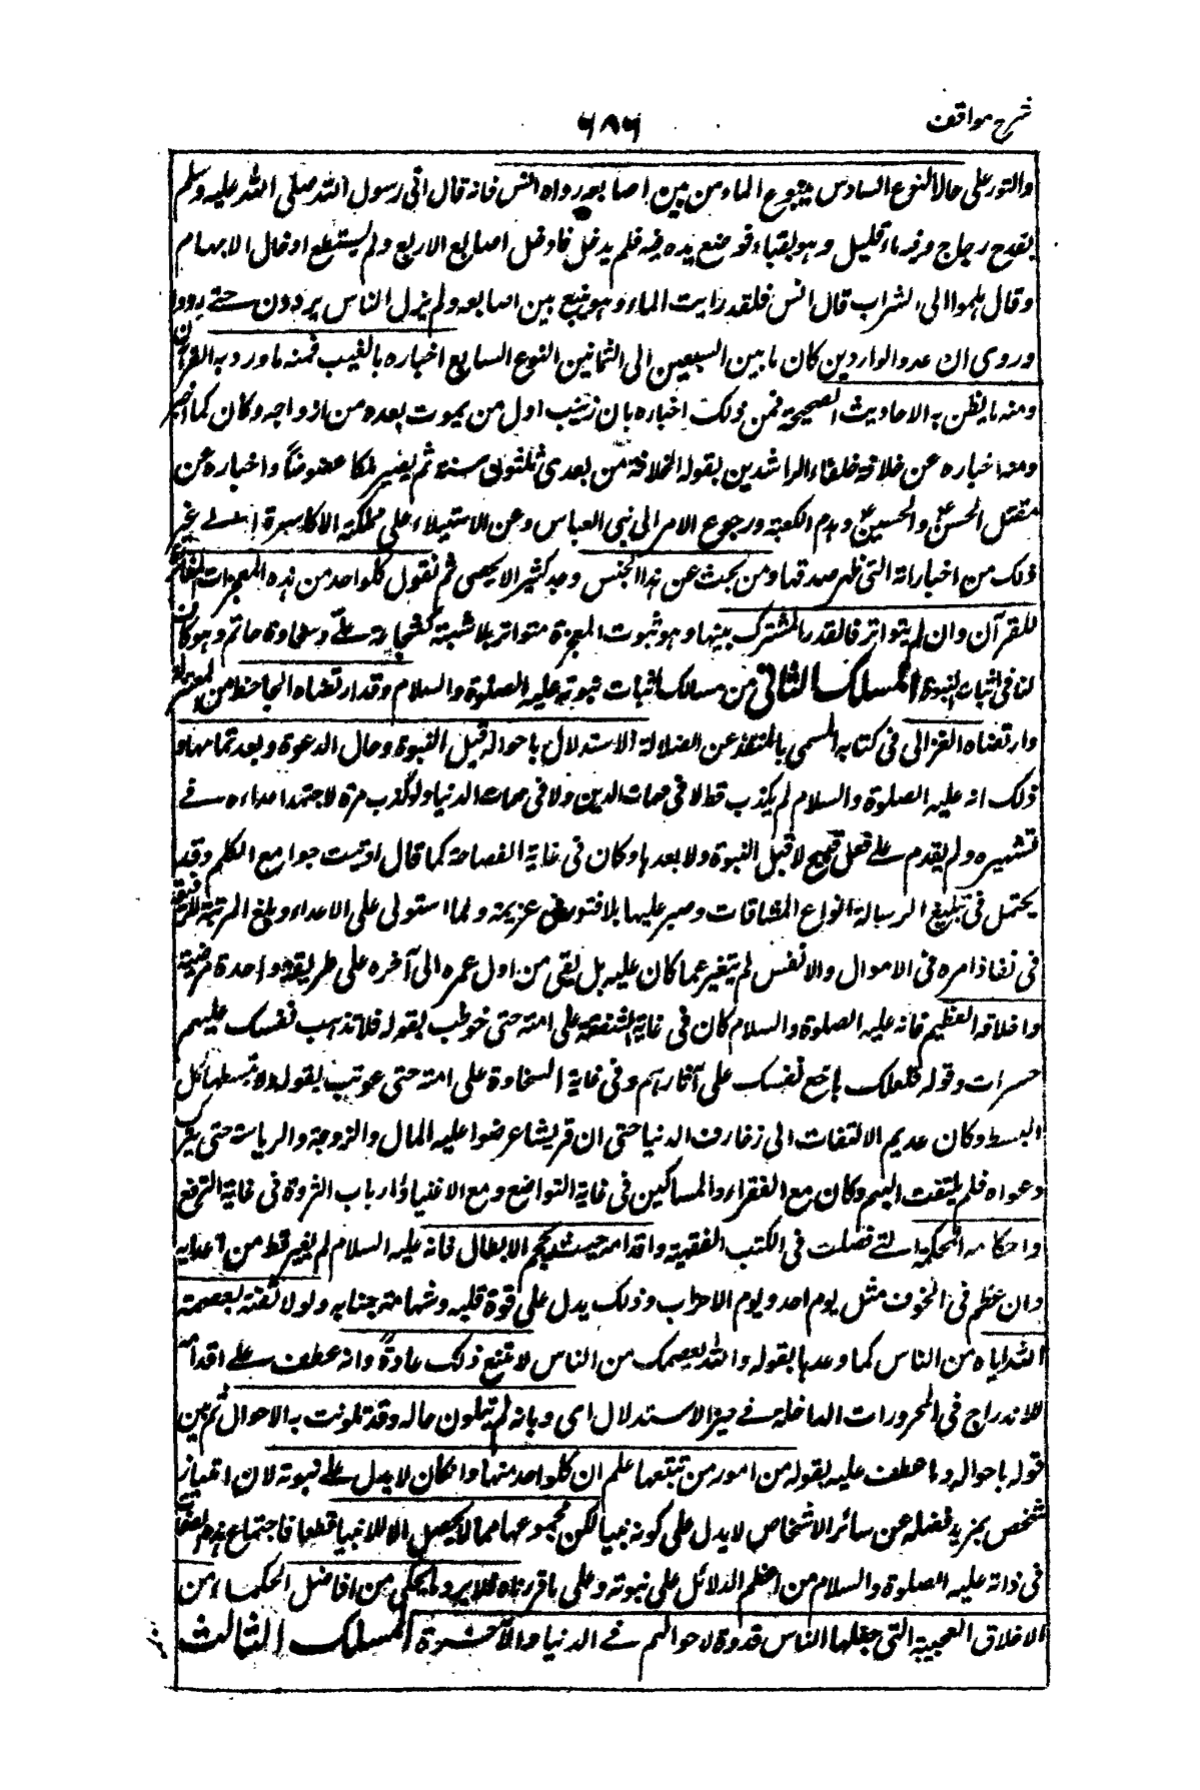 شرح مواقف
٦٨٦
والتور على حالا النوع السادس ينبوع الماء من بين اصابعه رواه انس فانه قال اتى رسول الله صلى الله عليه وسلم
بقدح زجاج وفيه ماء قليل وهو بقباء فوضع يده فيه فلم يدخل فادخل اصابع الاربع ولم يستطع ادخال الابهام
وقال هلموا الى الشراب قال انس فلقد رايت الماء وهو ينبع بين اصابعه ولم يزل الناس يردون حتى رووا
وروى ان عدد الواردين كان ما بين السبعين الى الثمانين النوع السابع اخباره بالغيب فمنه ما ورد به القرآن
ومنه ما ينطق به الاحاديث الصحيحة فمن ذلك اخباره بان زينب اول من يموت بعده من ازواجه وكان كما اخبر
ومنه اخباره عن خلافة خلفاء الراشدين بقوله الخلافة من بعدى ثلثون سنة ثم يصير ملكا عضوضاً واخباره عن
مقتل الحسن والحسين وهدم الكعبة ورجوع الامر الى بنى العباس وعن الاستيلاء على مملكة الاكاسرة الى غير
ذلك من اخباراته التى ظهر صدقها ومن بحث عن هذا الجنس وجد كثيرا لا يحصى ثم نقول كلواحد من هذه المعجزات المغائرة
للقرآن وان لم يتواتر فالقدر المشترك بينها وهو ثبوت المعجزة متواتر بلا شبهة كشجاعة علىّ وسخاوة حاتم وهو كان
لنا فى اثبات النبوة المسلك الثانى من مسالك اثبات نبوته عليه الصلوة والسلام وقد ارتضاه الجاحظ من المعتزلة
وارتضاه الغزالى فى كتابه المسمى بالمنقذ عن الضلالة الاستدلال باحواله قبل النبوة وحال الدعوة وبعد تمامها و
ذلك انه عليه الصلوة والسلام لم يكذب قط لا فى مهمات الدين ولا فى مهمات الدنيا ولو كذب مرة لاجتهد اعداءه فى
تشهيره ولم يقدم على فعل قبيح لا قبل النبوة ولا بعدها وكان فى غاية الفصاحة كما قال اوتيت جوامع الكلم وقد
يحتمل فى تبليغ الرسالة انواع المشاقات وصبر عليها بلا فتور فى عزيمة ولما استولى على الاعداء وبلغ المرتبة الرفيعة
فى نفاذ امره فى الاموال والانفس لم يتغير عما كان عليه بل بقى من اول عمره الى آخره على طريقة واحدة مرضية
واخلاقه العظيم فانه عليه الصلوة والسلام كان فى غاية الشفقة على امته حتى خوطب بقوله فلا تذهب نفسك عليهم
حسرات وقوله فلعلك باخع نفسك على آثارهم وفى غاية السخاوة على امته حتى عوتب بقوله ولا تبسطها كل
البسط وكان عديم الالتفات الى زخارف الدنيا حتى ان قريشا عرضوا عليه المال والزوجة والرياسة حتى يترك
دعواه فلم يلتفت اليهم وكان مع الفقراء والمساكين فى غاية التواضع ومع الاغنياء وارباب الثروة فى غاية الترفع
واحكامه المحكمة التى فصلت فى الكتب الفقهية واقدامه حيث يحجم الابطال فانه عليه السلام لم يفر قط من اعدائه
وان عظم فى الخوف مثل يوم احد ويوم الاحزاب وذلك يدل على قوة قلبه وشهامة جنابه ولولا ثقته بعصمة
الله اياه من الناس كما وعدها بقوله والله يعصمك من الناس لامتنع ذلك عادةً وانه عطف على اقدامه
للاندراج فى المجرورات الداخلة فى حيز الاستدلال اى وبانه لم يتلون حاله وقد تلونت به الاحوال ثم بين
قوله باحواله وما عطف عليه بقوله من امور من تتبعها علم ان كلواحد منها وانكان لا يدل على نبوته لان امتياز
شخص بمزيد فضله عن سائر الاشخاص لا يدل على كونه نبيا لكن مجموعها مما لا يحصل الا للانبيا قطعا فاجتماع هذه الصفات
فى ذاته عليه الصلوة والسلام من اعظم الدلائل على نبوته وعلى ما قررناه فلا يرد ما يحكى من افاضل الحكماء من
الاخلاق العجيبة التى جعلها الناس قدوة لاحوالهم فى الدنيا والآخرة المسلك الثالث